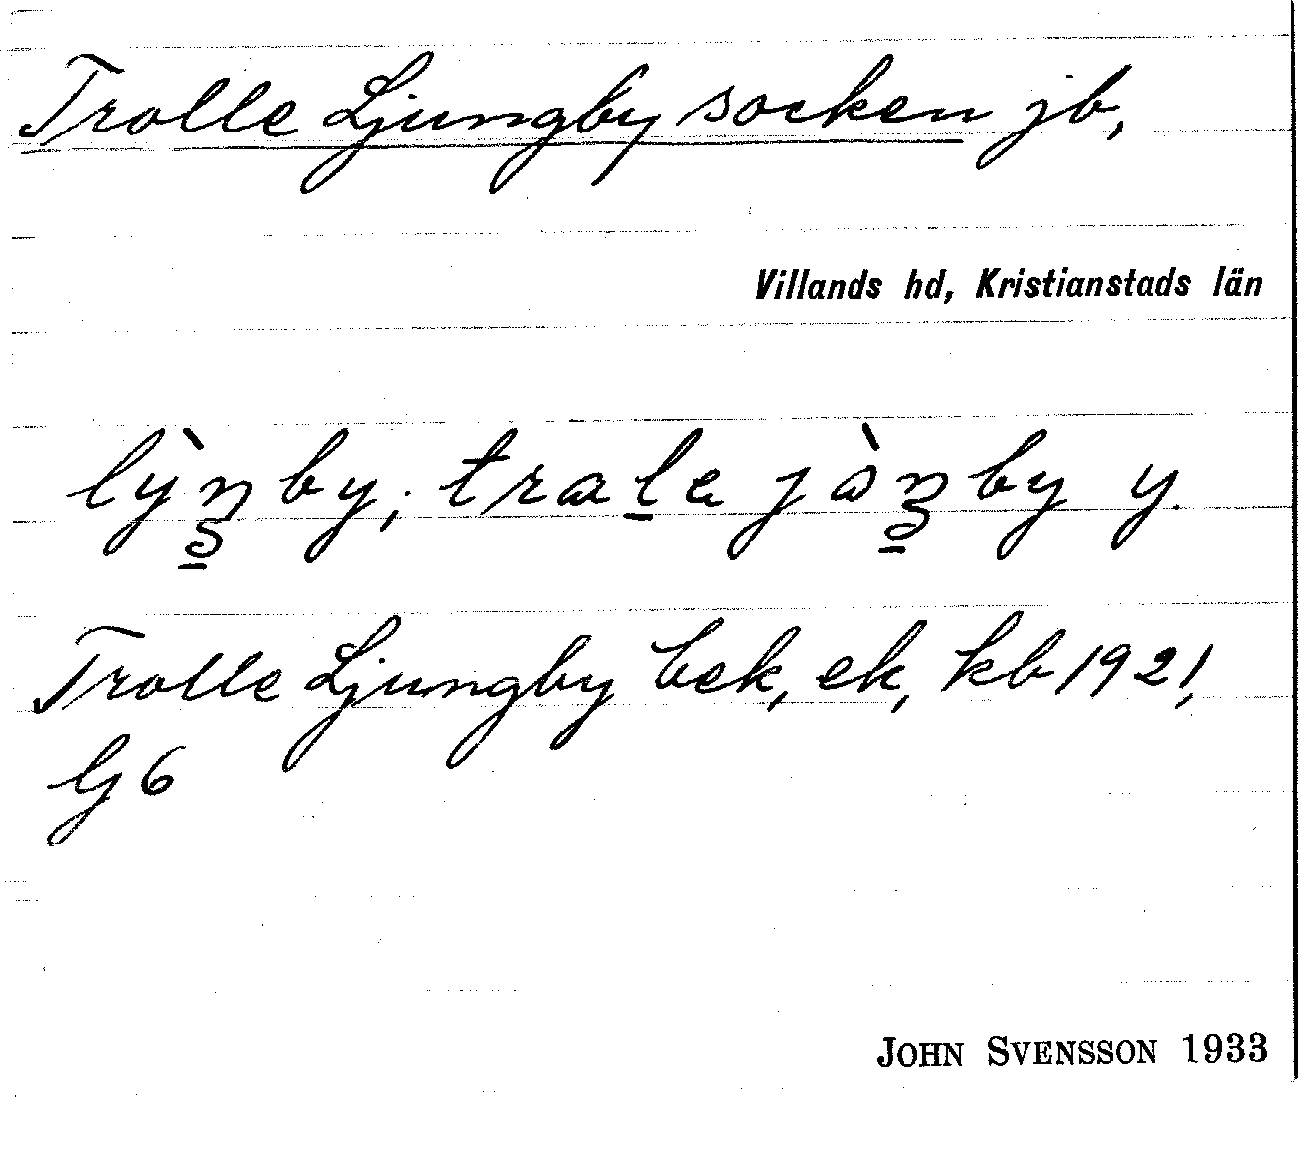 Trolle Ljungby socken jb,
Villands hd, Kristianstads län
lỳŋby; trale jàŋby y.
Trolle Ljungby bek, ek, kb 1921,
G 6
JOHN SVENSSON 1933